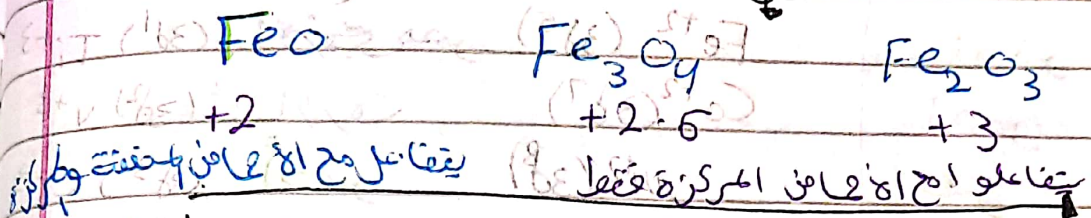 FeO Fe₃O₄ Fe₂O₃
+2 +2.6 +3
يتفاعل مع الأحماض المخففة والمركزة يتفاعلو مع الأحماض المركزة فقط